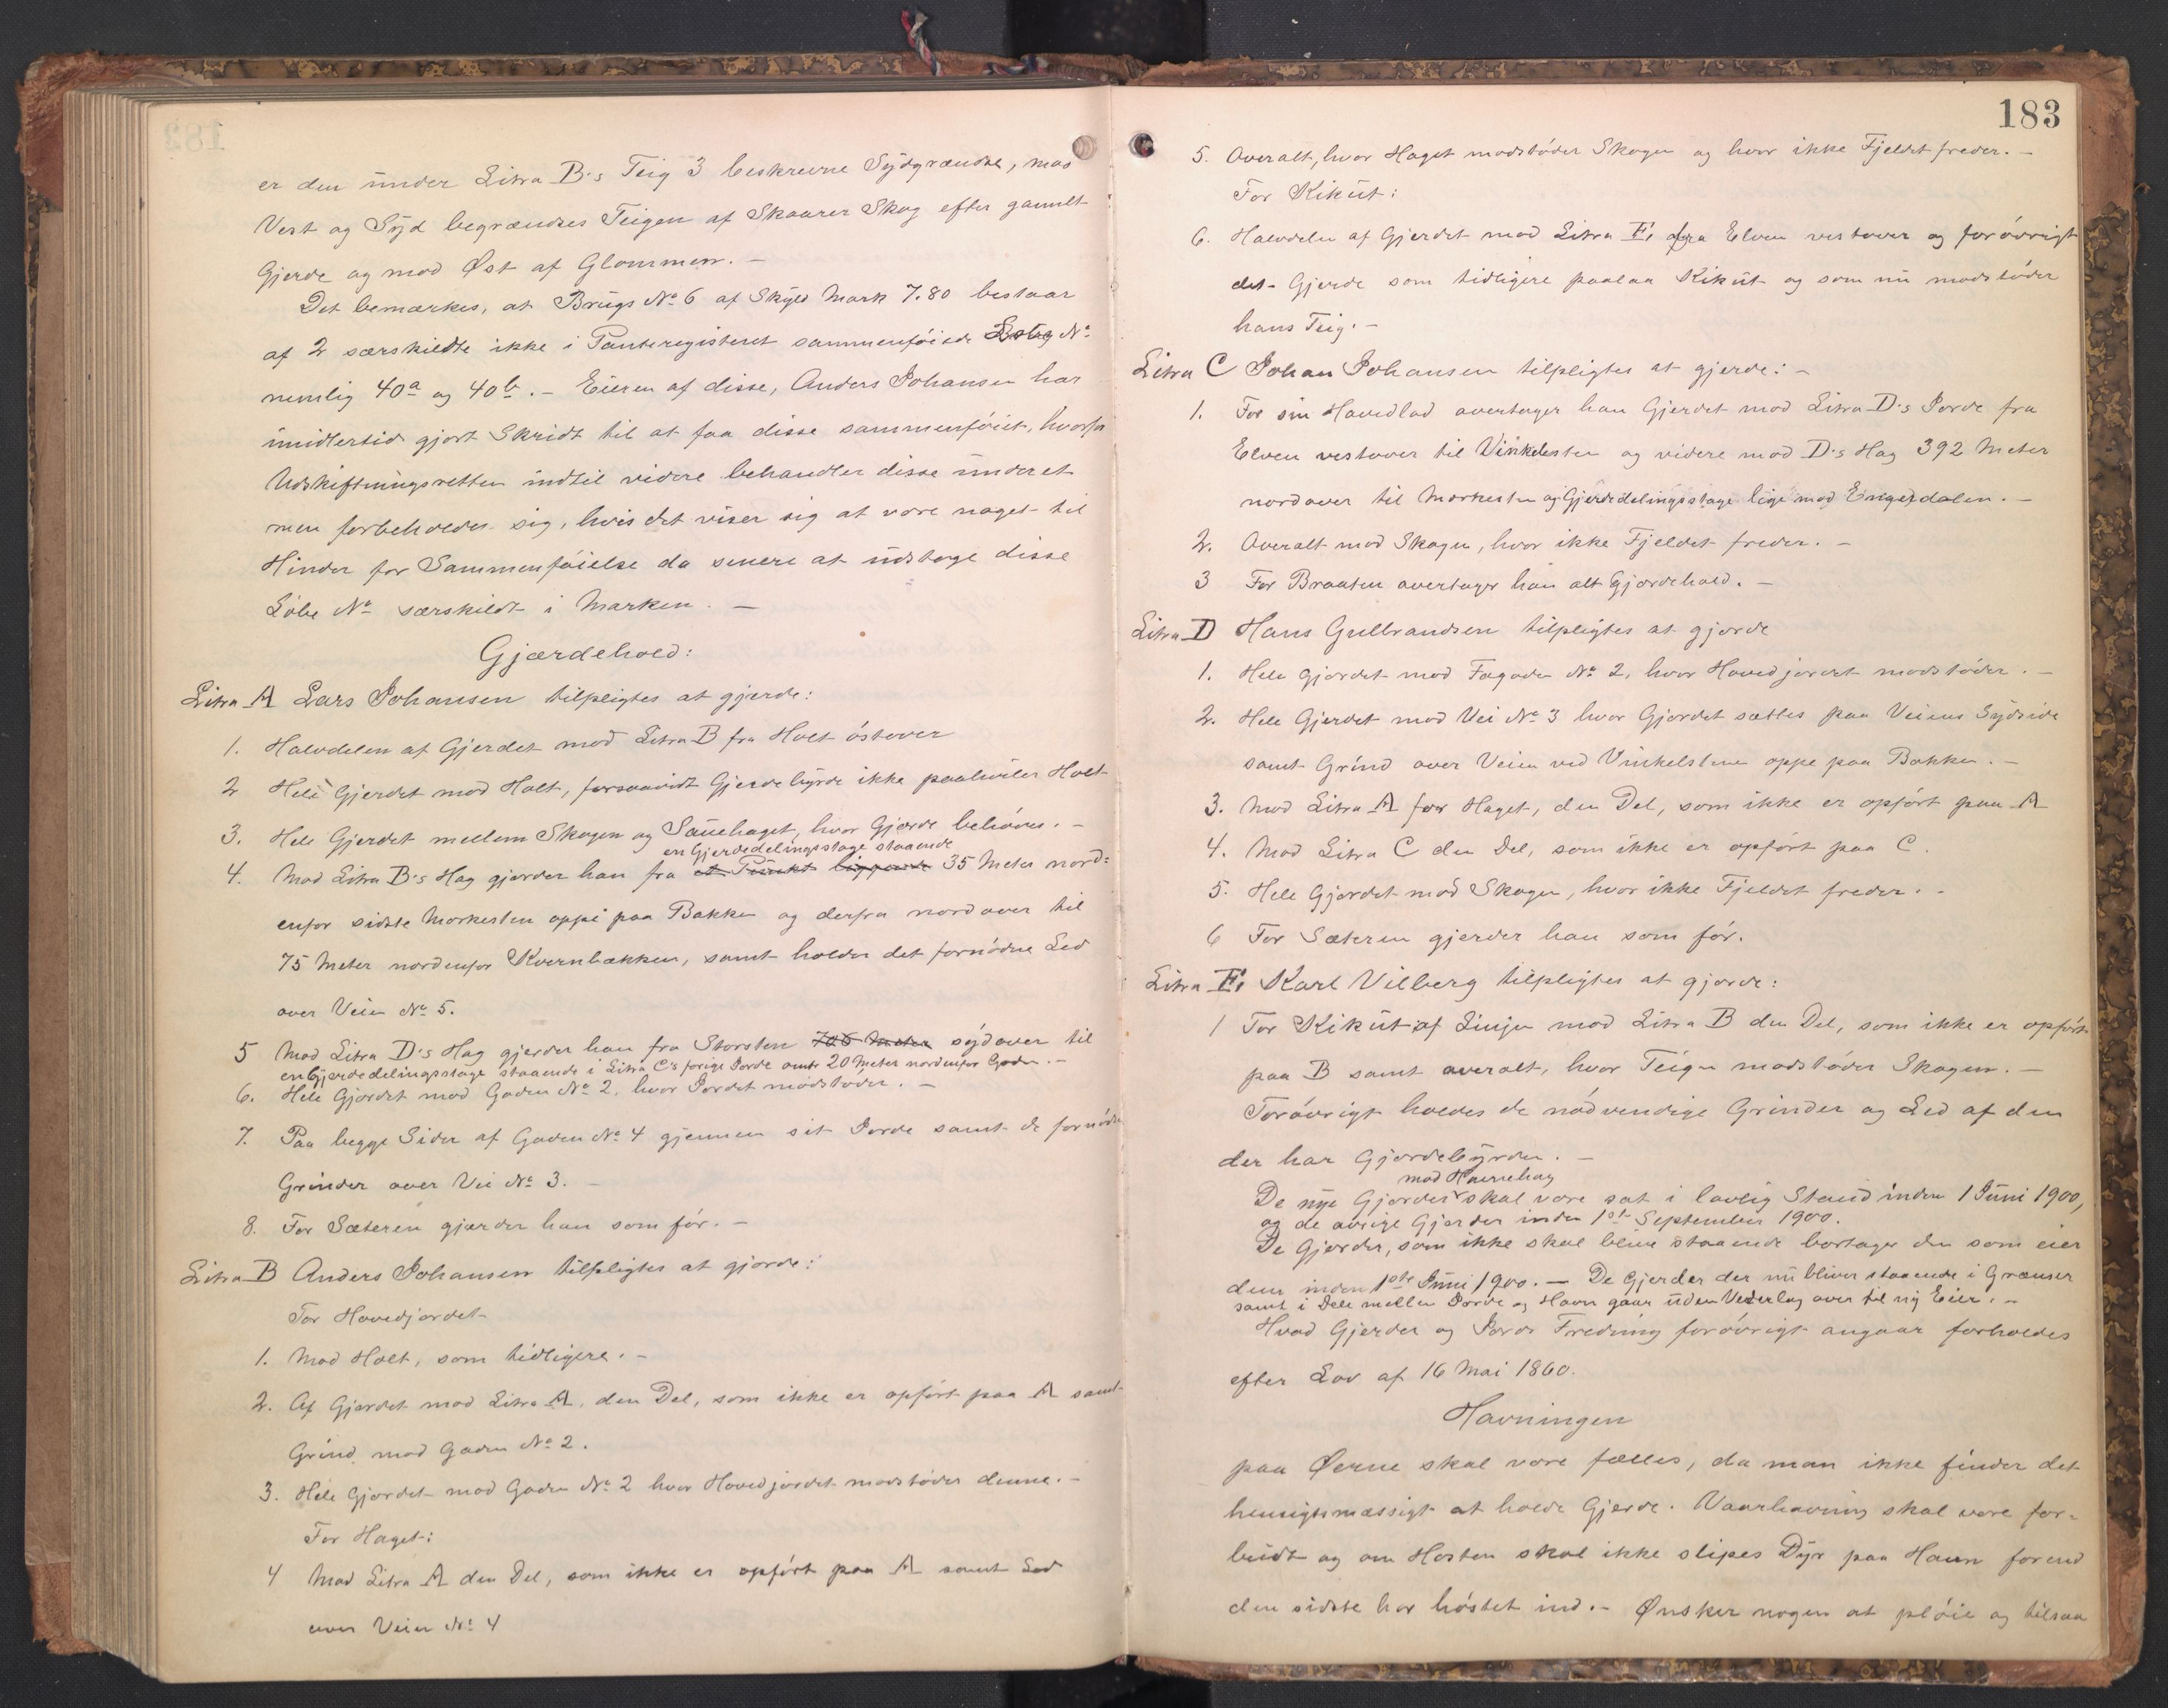 er den under Litra B's Teig 3 beskrevne Sydgrændse, mod
Vest og Syd begrændses Teigen af Skaarer Skog efter gamelt
Gjerde og mod Øst af Glommen. –
Det bemærkes, at Brugs № 6 af Skyld Mark 7.80 bestaar
af 2 særskildte ikke i Panteregisteret sammenføiede №
nemlig 40a og 40b. – Eieren af disse, Anders Johansen har
imidlertid gjort Skridt til at faa disse sammenføiet, hvorfor
Udskiftningsretten indtil videre behandler disse under et
men forbeholder sig, hvis det viser sig at være noget til
Hinder for Sammenføielse da senere at udstage disse
Løbe № særskildt i Marken. –
Gjærdehold:
Litra A Lars Johansen tilpligtes at gjerde:
1. Halvdelen af Gjerdet mod Litra B fra Holt østover
2 Hele Gjerdet mod Holt, forsaavidt Gjerdebyrde ikke paahviler Holt
3. Hele Gjerdet mellem Skogen og Sauehaget, hvor Gjærde behøves. –
en Gjerdedelingsstage staaende
4. Mod Litra B's Hag gjærder han fra et Punkt liggende 35 Meter nord=
enfor sidste Merkesten oppe paa Bakken og derfra nordover til
75 Meter nordenfor Kvernbækken, samt holder det fornødne Led
over Veien № 5.
5 Mod Litra D's Hag gjerder han fra Storsten 706 Meter sydover til
en Gjerdedelingsstage staaende i Litra C's forige Jorde omtr 20 Meter nordenfor Gaden. –
6. Hele Gjerdet mod Gaden № 2, hvor Jordet modstøder. –
7. Paa begge Sider af Gaden № 4 gjennem sit Jorde samt de fornødne
Grinder over Vei № 3. –
8. For Sæteren gjærder han som før. –
Litra B Anders Johansen tilpligtes at gjerde:
For Hovedjordet
1. Mod Holt, som tidligere. –
2. Af Gjerdet mod Litra A, den Del, som ikke er opført paa A samt
Grind mod Gaden № 2.
3. Hele Gjerdet mod Gaden № 2 hvor Hovedjordet modstøder denne. –
For Haget:
4 Mod Litra A den Del, som ikke er opført paa A samt Led
over Veien № 4
183
5. Overalt, hvor Haget modstøder Skogen og hvor ikke Fjeldet freder. –
For Kikut:
6. Halvdelen af Gjerdet mod Litra E, fra Elven vestover og forøvrigt
det Gjerde som tidligere paalaa Kikut og som nu modstøder
hans Teig. –
Litra C Johan Johansen tilpligtes at gjerde: –
1. For sin Havedlod overtager han Gjerdet mod Litra D's Jorde fra
Elven vestover til Vinkelsten og videre mod D's Hag 392 Meter
nordover til Merkesten og Gjerdedelingsstage lige mod Engerdalen. –
2. Overalt mod Skogen, hvor ikke Fjeldet freder. –
3 For Braaten overtager han alt Gjærdehold. –
Litra D Hans Gulbrandsen tilpligtes at gjerde
1. Hele Gjerdet mod Fægaden № 2, hvor Hovedjordet modstøder. –
2. Hele Gjerdet mod Vei № 3 hvor Gjerdet sættes paa Veiens Sydside
samt Grind over Veien ved Vinkelstenen oppe paa Bakken. –
3. Mod Litra A for Haget, den Del, som ikke er opført paa A
4. Mod Litra C den Del, som ikke er opført paa C.
5. Hele Gjerdet mod Skogen, hvor ikke Fjeldet freder. –
6 For Sæteren gjerder han som før.
Litra E, Karl Vilberg tilpligtes at gjerde:
1 For Kikut af Linjen mod Litra B den Del, som ikke er opført
paa B samt overalt, hvor Teigen modstøder Skogen. –
Forøvrigt holdes de nødvendige Grinder og Led af den
der har Gjærdebyrden. –
mod Havnehag
De nye Gjerder skal være sat i lovlig Stand inden 1 Juni 1900,
og de øvrige Gjerder inden 1ste September 1900.
De Gjerder, som ikke skal blive staaende bortager den som eier
dem inden 1ste Juni 1900. – De Gjerder der nu bliver staaende i Grænser
samt i Dele mellem Jorde og Havn gaar uden Vederlag over til ny Eier. –
Hvad Gjerder og Jords Fredning forøvrigt angaar forholdes
efter Lov af 16 Mai 1860.
Havningen
paa Øerne skal være fælles, da man ikke finder det
hensigtsmæssigt at holde Gjerde. Vaarhavning skal være for=
budt og om Høsten skal ikke slipes Dyr paa Havn forend
den sidste har høstet ind. – Ønsker nogen at pløie og tilsaa